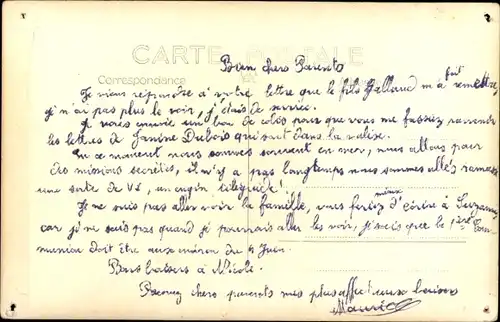 CARTE POSTALE
Bien chers Parents
Correspondance
Je viens répondre à votre lettre que le fils Galland m'a fait remettre,
je n'ai pas plus le voir, j'étais de service.
Je vous envoie un bon de colis pour que vous me fassiez parvenir
les lettres de Janine Dubois qui sont dans la valise.
En ce moment nous sommes souvent en mer, nous allons pour
des missions secrètes, il n'y a pas longtemps nous sommes allés ramasser
une sorte de V1, un engin téléguidé!
Je ne suis pas aller voir la famille, vous feriez mieux d'écrire à Suzanne
car je ne sais pas quand je pourrais aller les voir, je sais que la 1ère Com
munion doit être aux environ du 4 Juin.
Bons baisers à Nicole.
Recevez chers parents mes plus affectueux baisers
Maurice